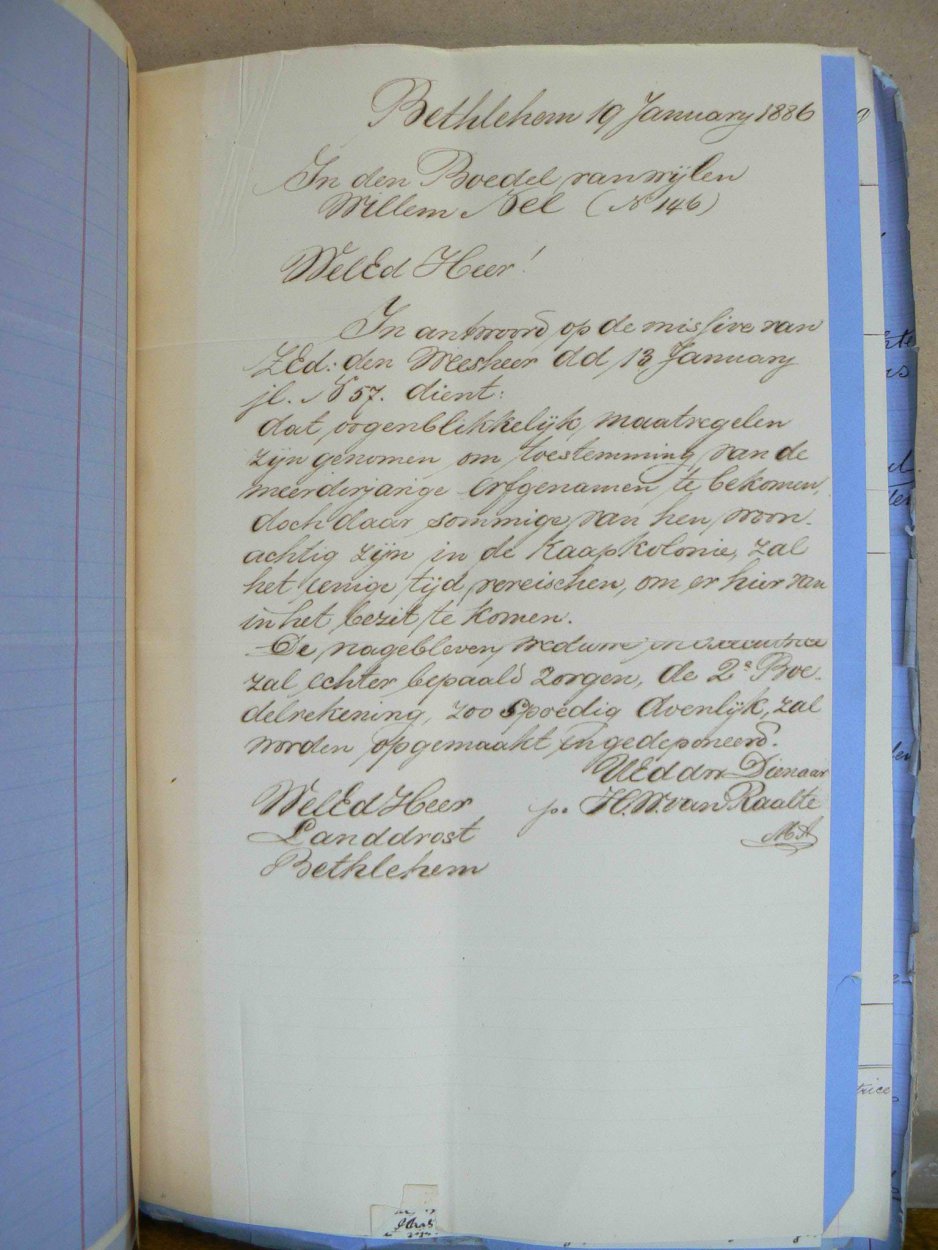 Bethlehem 19 January 1886
In den Boedel van wijlen
Willem Nel (No 146)
WelEd Heer!
In antwoord op de missive van
ZEd: den Weesheer dd 13 January
jl. No 57. dient:
dat oogenblikkelijk maatregelen
zijn genomen om toestemming van de
meerderjarige Erfgenamen te bekomen,
doch daar sommige van hen woon-
achtig zijn in de Kaapkolonie, zal
het eenige tijd vereischen, om er hier van
in het bezit te komen.
De nagebleven weduwe en Executrice
zal echter bepaald zorgen, de 2e Boe-
delrekening, zoo Spoedig doenlijk, zal
worden opgemaakt en gedeponeerd.
UEd dw Dienaar
WelEd Heer
p. H.W. van Raalte
Landdrost
Bethlehem